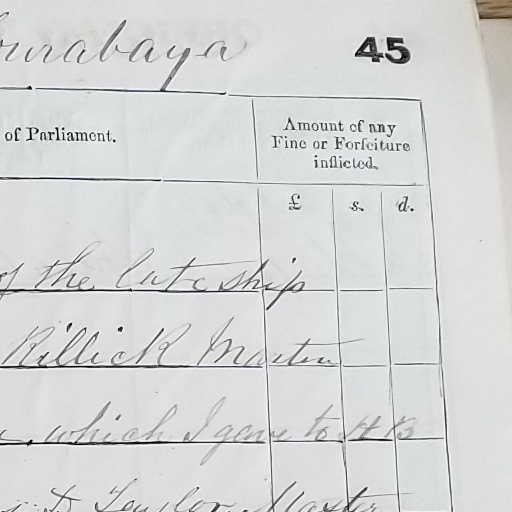 urabaya 45
of Parliament.
Amount of any
Fine or Forfeiture
inflicted.
£ s. d.
of the late ship
Killick Martin
which I gave to H B
D Taylor Master